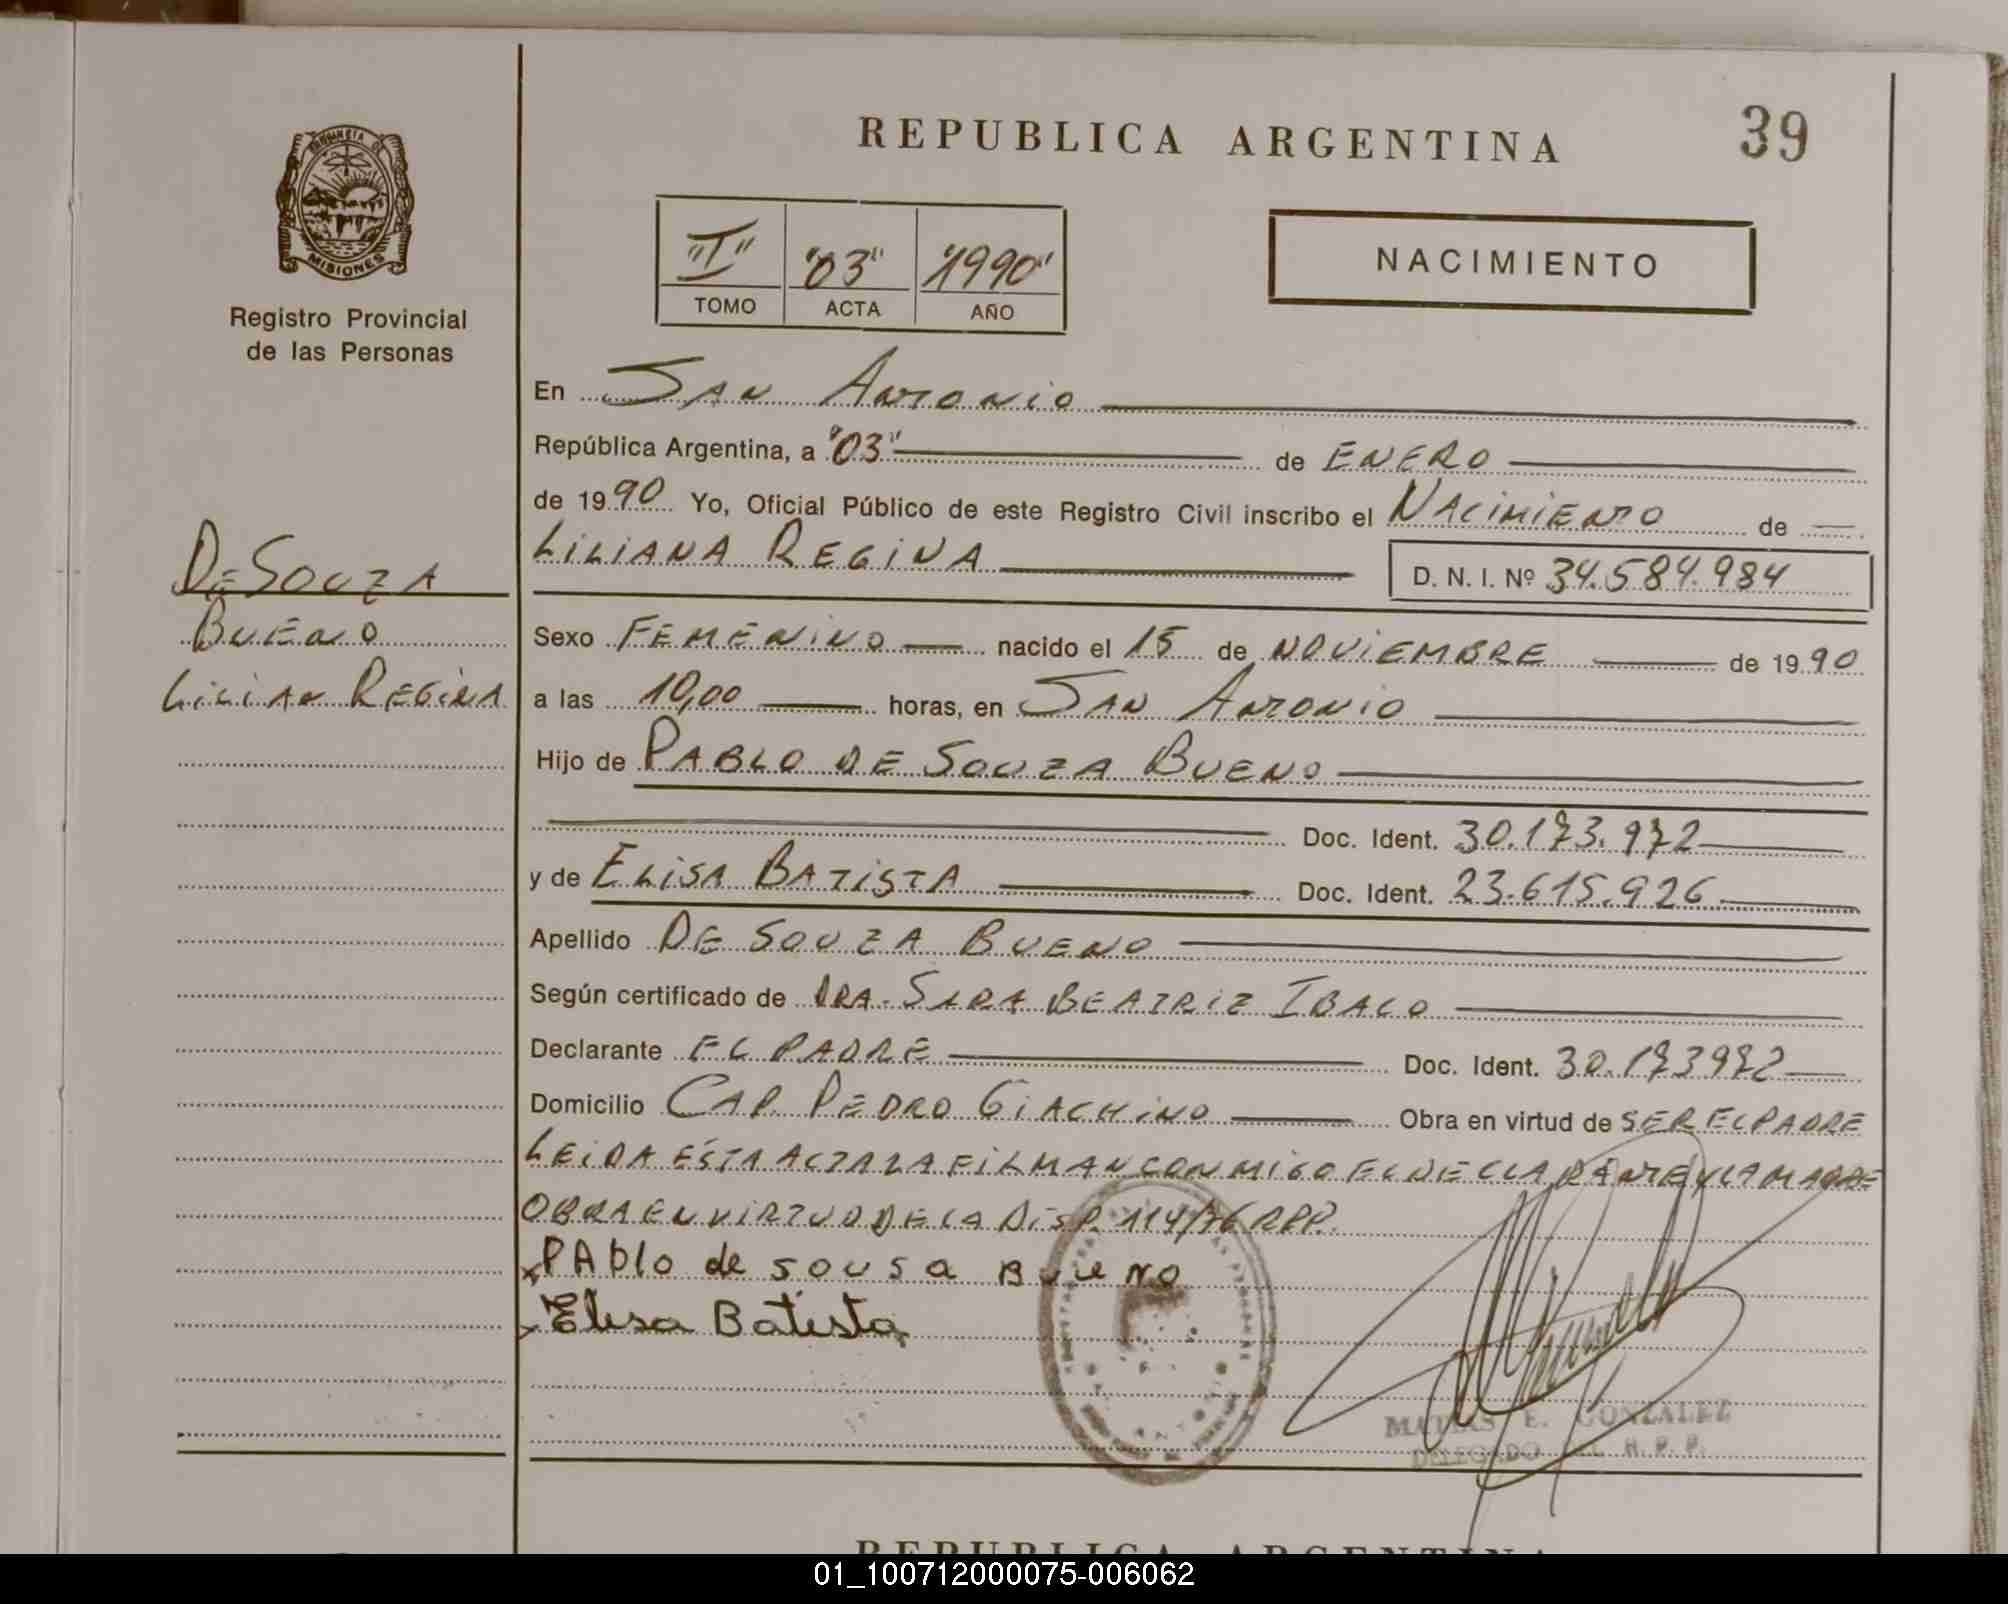 REPUBLICA ARGENTINA
39
PROVINCIA DE
MISIONES
Registro Provincial
de las Personas
"I" "03" "1990"
TOMO ACTA AÑO
NACIMIENTO
De Souza
Bueno
Lilian Regina
En San Antonio
República Argentina, a "03" de ENERO
de 1990 Yo, Oficial Público de este Registro Civil inscribo el NACIMIENTO de
LILIANA REGINA D. N. I. Nº 34.584.984
Sexo FEMENINO nacido el 15 de NOVIEMBRE de 1990
a las 10,00 horas, en SAN ANTONIO
Hijo de PABLO DE SOUZA BUENO
Doc. Ident. 30.173.972
y de ELISA BATISTA Doc. Ident. 23.615.926
Apellido DE SOUZA BUENO
Según certificado de DRA. SARA BEATRIZ IBALO
Declarante EL PADRE Doc. Ident. 30.173972
Domicilio CAP. PEDRO GIACHINO Obra en virtud de SER EL PADRE
LEIDA ESTA ACTA LA FILMAN CONMIGO EL DECLARANTE Y LA MADRE
OBRA EN VIRTUD DE LA DISP. 114/76 RPP.
x PAblo de sousa Bueno
x Elisa Batista
MATIAS E. GONZALEZ
DELEGADO R. P. P.
REPUBLICA ARGENTINA
01_100712000075-006062